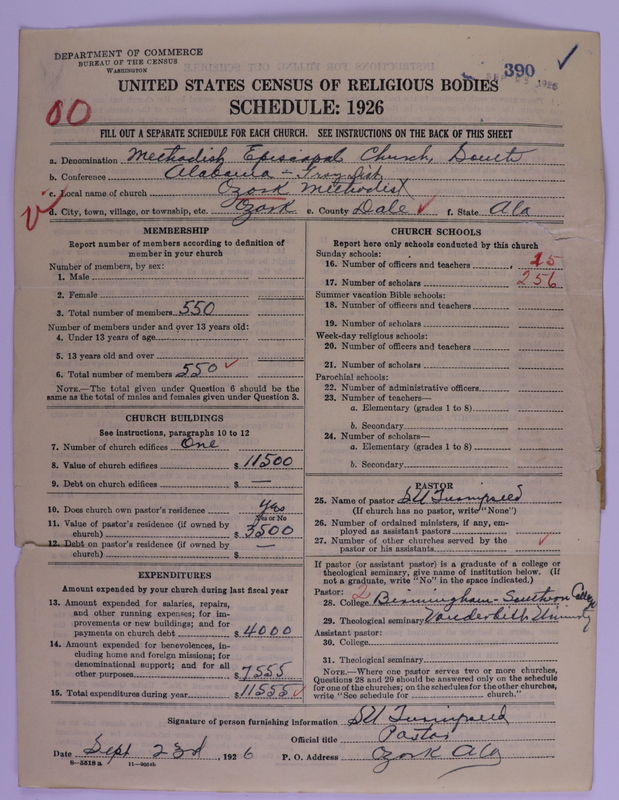 DEPARTMENT OF COMMERCE
BUREAU OF THE CENSUS
WASHINGTON
390
1926
UNITED STATES CENSUS OF RELIGIOUS BODIES
SCHEDULE: 1926
00
FILL OUT A SEPARATE SCHEDULE FOR EACH CHURCH. SEE INSTRUCTIONS ON THE BACK OF THIS SHEET
a. Denomination Methodist Episcopal Church, South
b. Conference Alabama - Troy Dist.
c. Local name of church Ozark Methodist
d. City, town, village, or township, etc. Ozark e. County Dale f. State Ala
MEMBERSHIP
Report number of members according to definition of
member in your church
Number of members, by sex:
1. Male
2. Female
3. Total number of members 550
Number of members under and over 13 years old:
4. Under 13 years of age
5. 13 years old and over
6. Total number of members 550
NOTE.—The total given under Question 6 should be the
same as the total of males and females given under Question 3.
CHURCH BUILDINGS
See instructions, paragraphs 10 to 12
7. Number of church edifices One
8. Value of church edifices $ 11500
9. Debt on church edifices $ —
10. Does church own pastor's residence Yes
Yes or No
11. Value of pastor's residence (if owned by
church) $ 3500
12. Debt on pastor's residence (if owned by
church) $ —
EXPENDITURES
Amount expended by your church during last fiscal year
13. Amount expended for salaries, repairs,
and other running expenses; for im-
provements or new buildings; and for
payments on church debt $ 4000
14. Amount expended for benevolences, in-
cluding home and foreign missions; for
denominational support; and for all
other purposes $ 7555
15. Total expenditures during year $ 11555
CHURCH SCHOOLS
Report here only schools conducted by this church
Sunday schools:
16. Number of officers and teachers 15
17. Number of scholars 256
Summer vacation Bible schools:
18. Number of officers and teachers
19. Number of scholars
Week-day religious schools:
20. Number of officers and teachers
21. Number of scholars
Parochial schools:
22. Number of administrative officers
23. Number of teachers—
a. Elementary (grades 1 to 8)
b. Secondary
24. Number of scholars—
a. Elementary (grades 1 to 8)
b. Secondary
PASTOR
25. Name of pastor S U Turnipseed
(If church has no pastor, write "None")
26. Number of ordained ministers, if any, em-
ployed as assistant pastors
27. Number of other churches served by the
pastor or his assistants
If pastor (or assistant pastor) is a graduate of a college or
theological seminary, give name of institution below. (If
not a graduate, write "No" in the space indicated.)
Pastor: 2
28. College Birmingham-Southern College
29. Theological seminary Vanderbilt University
Assistant pastor:
30. College
31. Theological seminary
NOTE.—Where one pastor serves two or more churches,
Questions 28 and 29 should be answered only on the schedule
for one of the churches; on the schedules for the other churches,
write "See schedule for church."
Signature of person furnishing information S U Turnipseed
Official title Pastor
Date Sept 23rd, 1926 P. O. Address Ozark Ala
8—5518 a